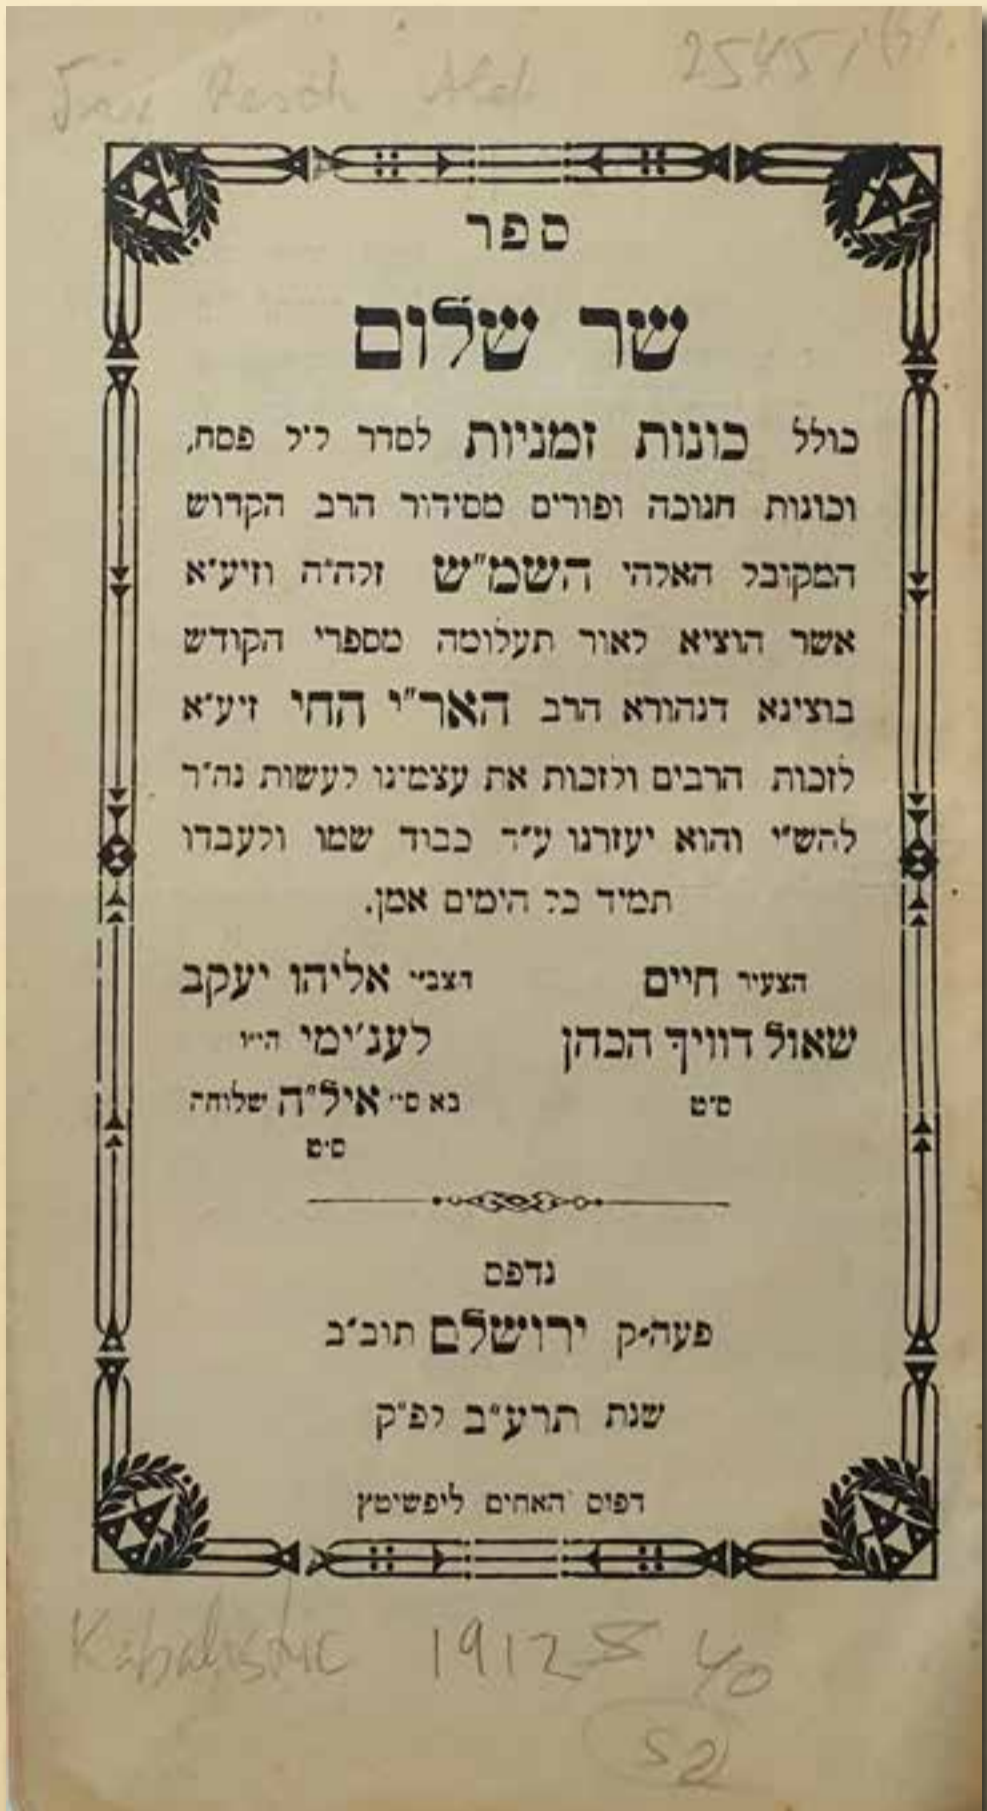 25451
ספר
שר שלום
כולל כונות זמניות לסדר ל״ל פסח,
וכונות חנוכה ופורים מסידור הרב הקדוש
המקובל האלהי השמ״ש זלה״ה וזיע״א
אשר הוציא לאור תעלומה מספרי הקודש
בוצינא דנהורא הרב האר״י החי זיע״א
לזכות הרבים ולזכות את עצמינו לעשות נה״ר
להש״י והוא יעזרנו ע״ד כבוד שמו ולעבדו
תמיד כל הימים אמן.
הצעיר חיים
שאול דוויך הכהן
ס״ט
הצב״י אליהו יעקב
לעג׳ימי הי״ו
בא סי׳ איל״ה שלוחה
ס״ט
נדפס
פעה״ק ירושלם תוב״ב
שנת תרע״ב לפ״ק
דפוס האחים ליפשיטץ
Kabalistic 1912 40
52